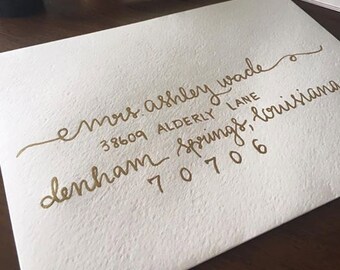 mrs. ashley wade
38609 ALDERLY LANE
denham springs, louisiana
70706